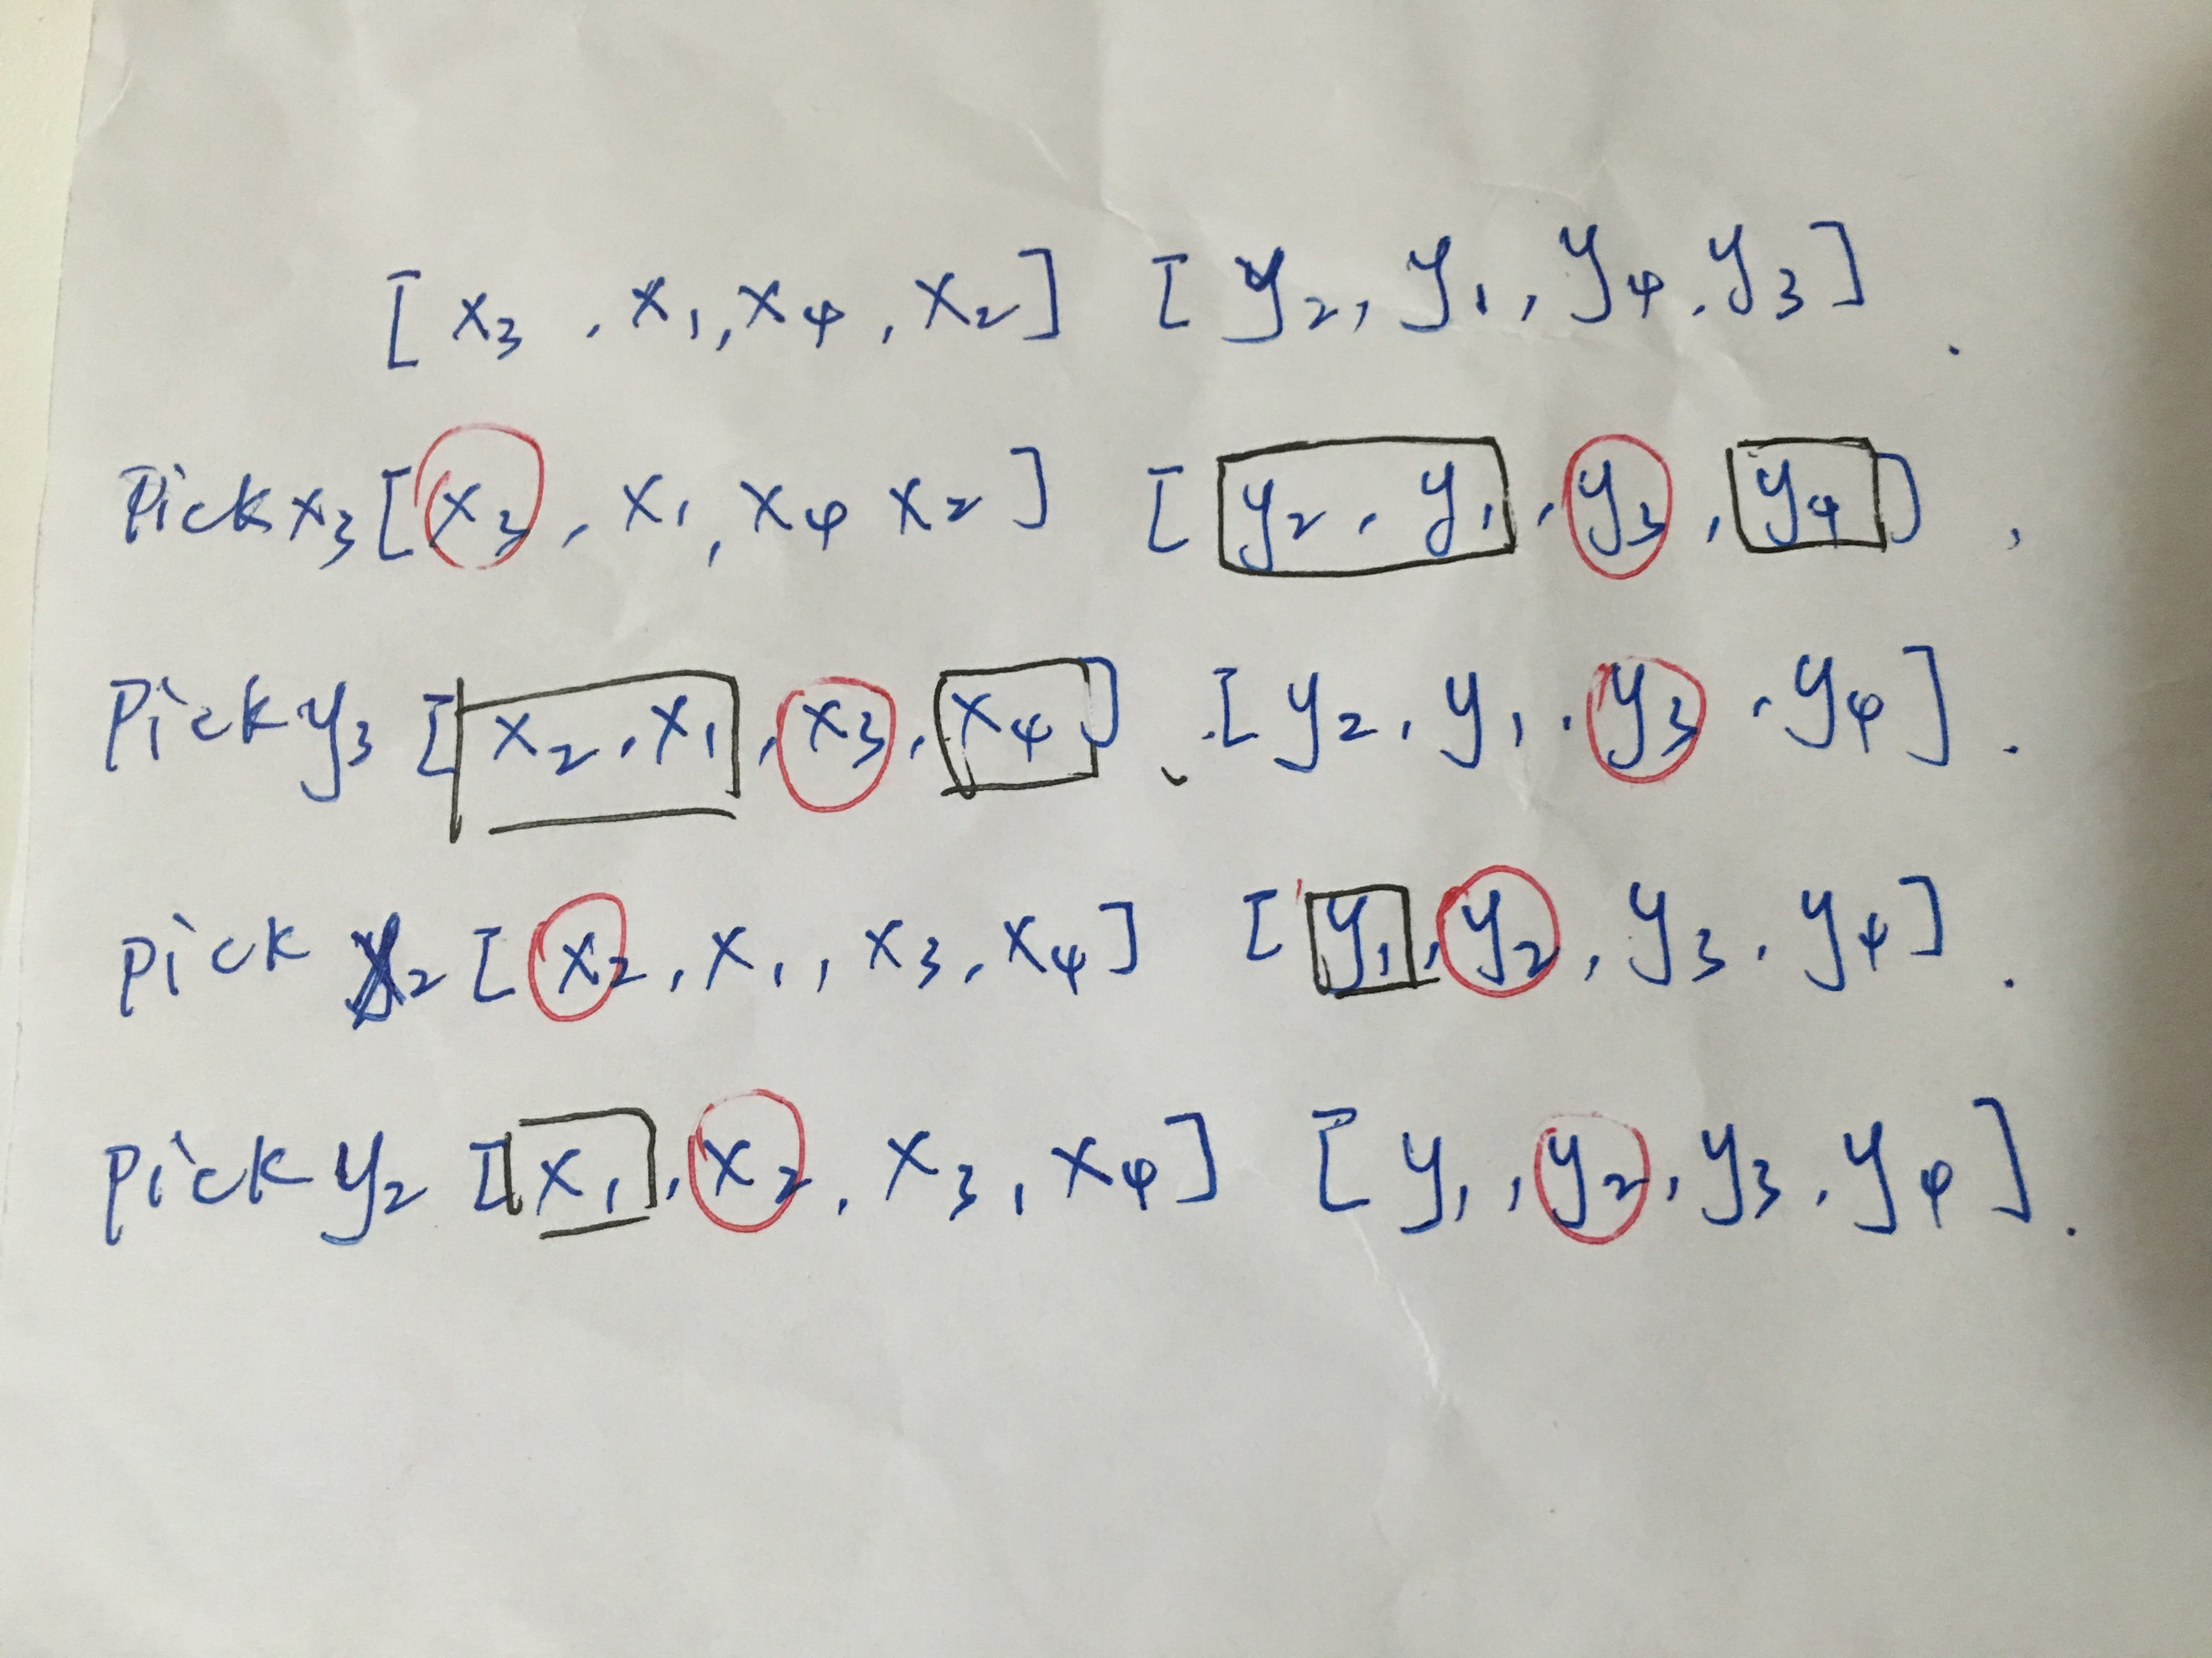 [ x₃ , x₁, x₄ , x₂ ] [ y₂, y₁, y₄, y₃ ] .
Pick x₃ [ x₃ , x₁ , x₄ x₂ ] [ y₂ , y₁ , y₃ , y₄ ] ,
Pick y₃ [ x₂ , x₁ , x₃ , x₄ ] , [ y₂ , y₁ , y₃ , y₄ ] .
pick x₂ [ x₂ , x₁ , x₃ , x₄ ] [ y₁ , y₂ , y₃ , y₄ ] .
pick y₂ [ x₁ , x₂ , x₃ , x₄ ] [ y₁ , y₂ , y₃ , y₄ ] .